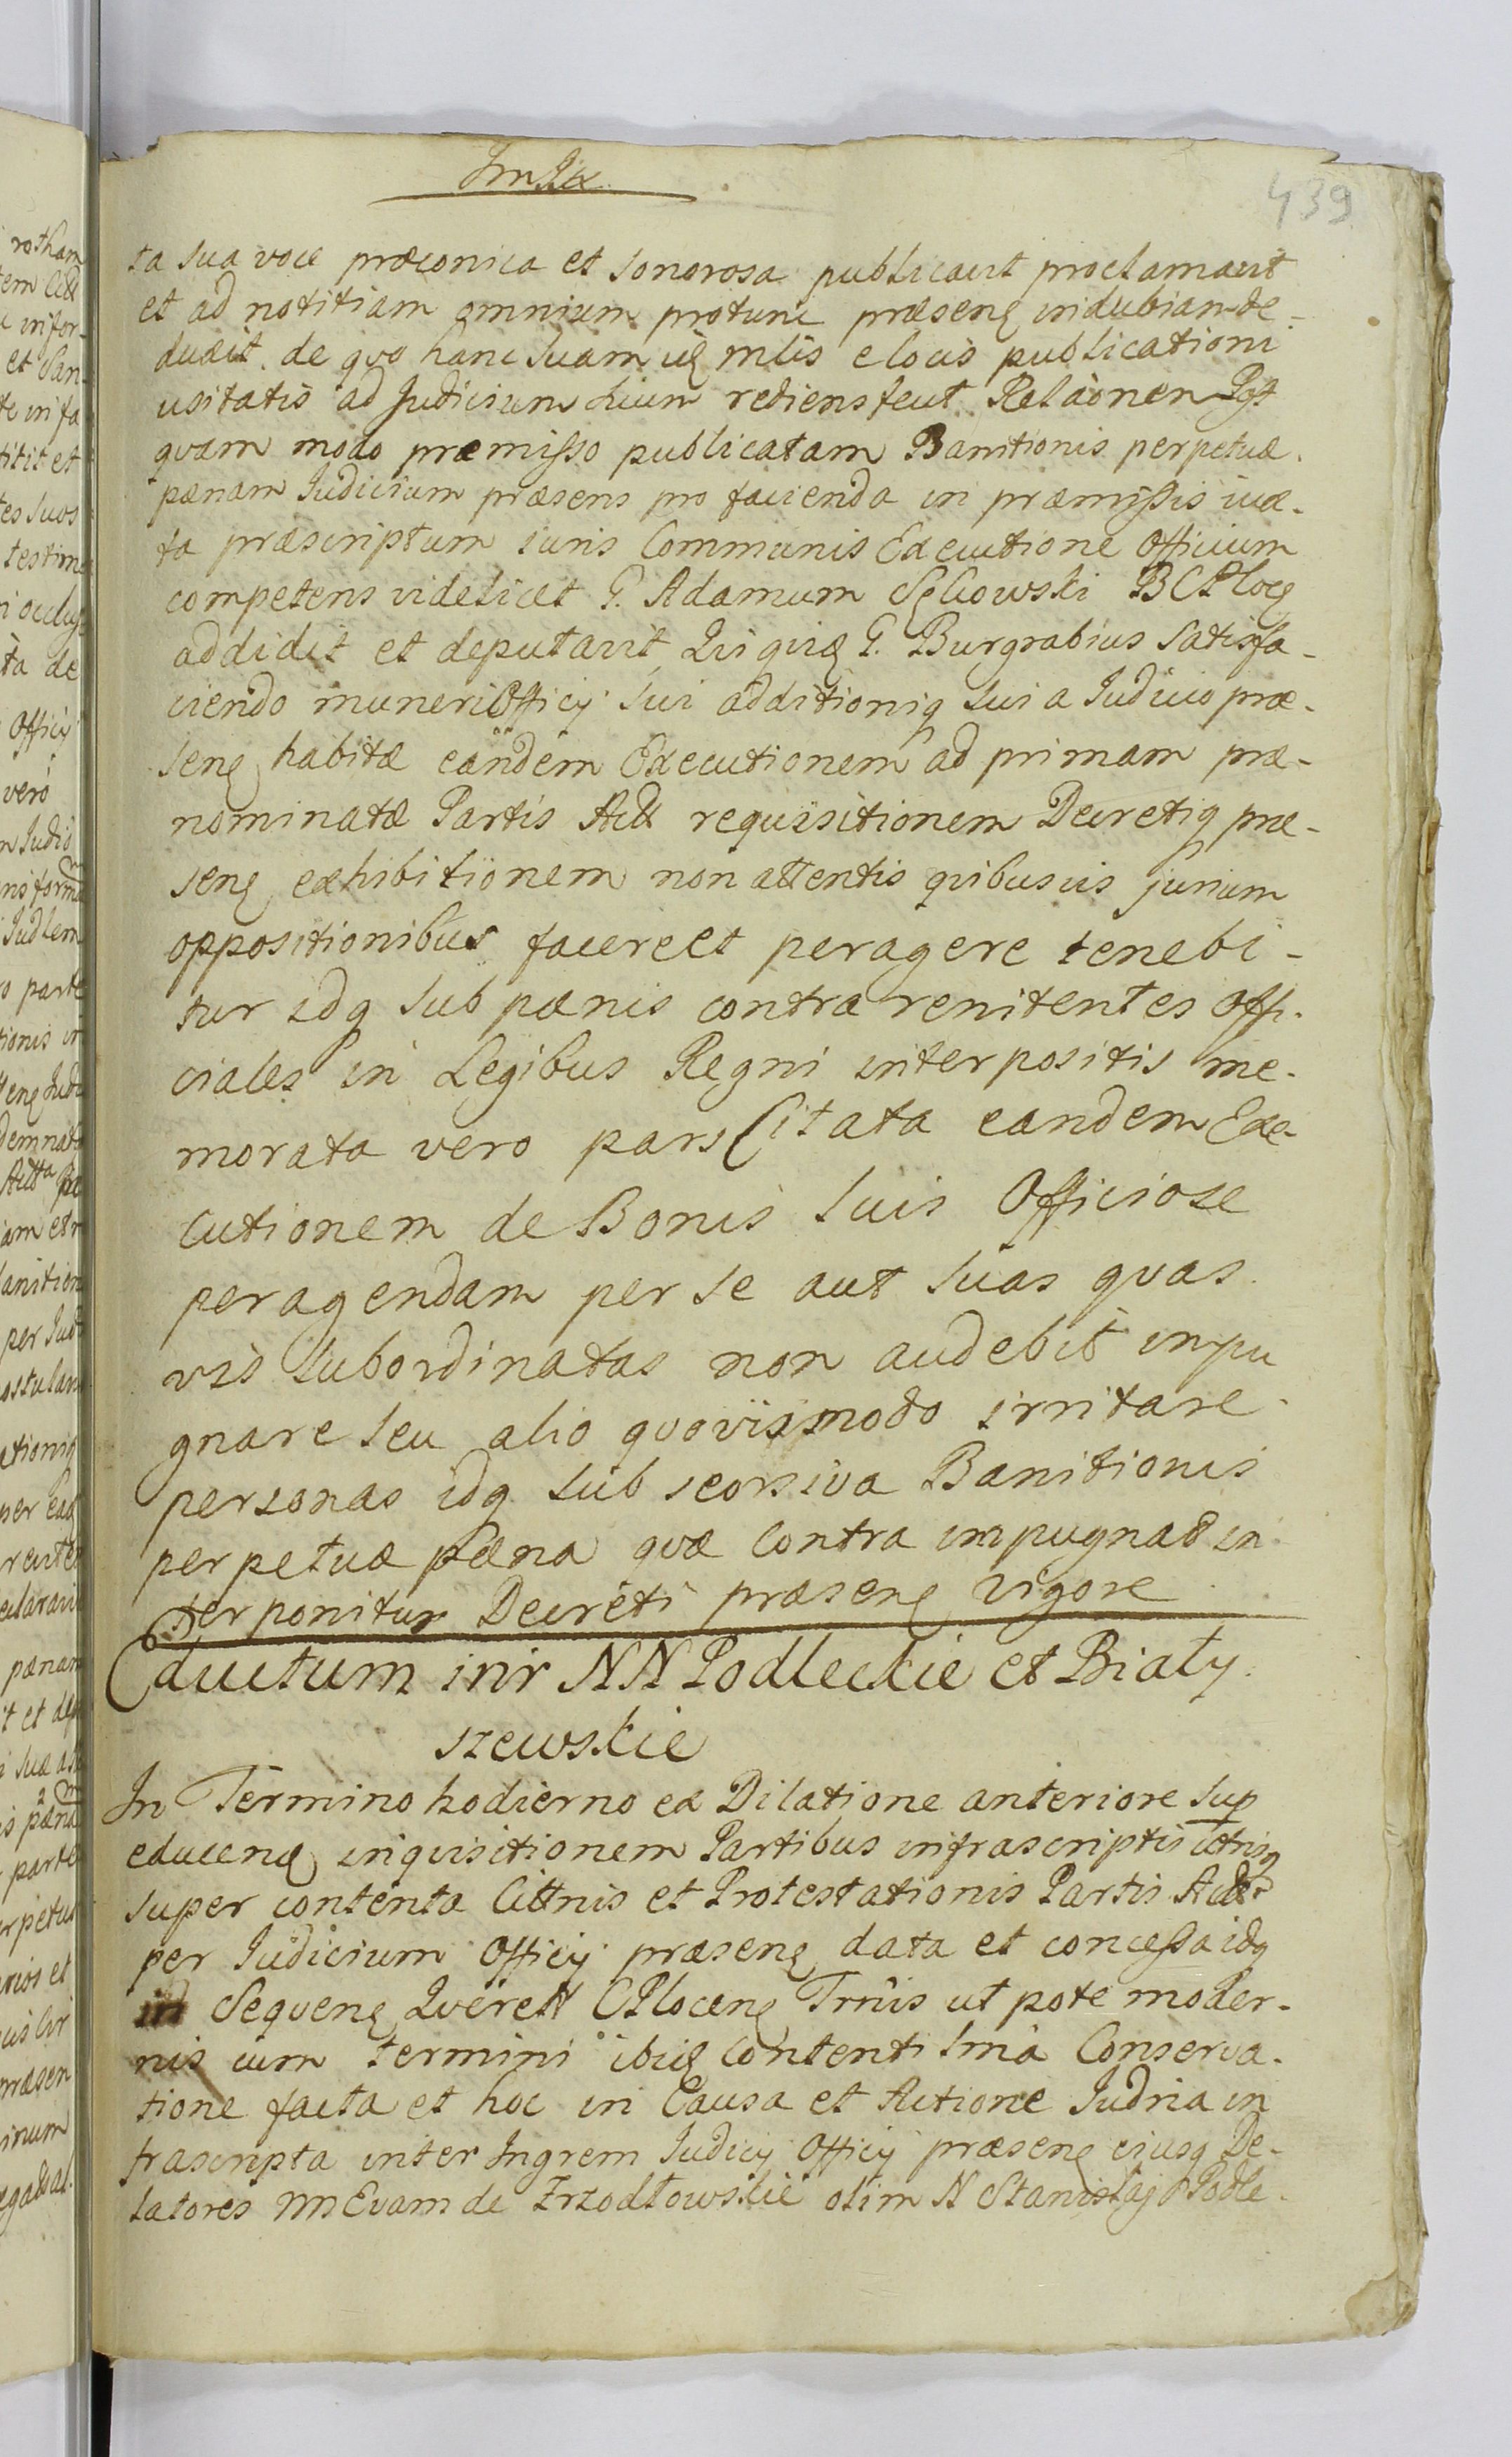 439
ta sua voce præconica et sonorosa publicavit proclamavit
et ad notitiam omnium protunc præsenę indubiam de-
duxit. de quo hanc suam uę mlis e locis publicationi
usitatis ad Judicium dium rediens fecit Relãonem Post
qvam modo præmisso publicatam Banitionis perpetuæ
pænam Judicium præsens pro facienda in præmissis iux-
ta præscriptum iuris Communis Executione Officium
competens videlicet G. Adamum Sękowski BCPlocę
addidit et deputavit, Qui quię G. Burgrabius satisfa-
ciendo muneri Officij sui additioniq sui a Judicio præ-
senę habitæ eandem Executionem ad primam præ-
nominatæ Partis Act requisitionem Decretiq præ-
senę exhibitionem non attentis qvibusvis jurium
oppositionibus facere et peragere tenebi-
tur idq sub pænis contra renitentes Offi-
ciales in Legibus Regni interpositis me-
morata vero pars Citata eandem Exe-
cutionem de Bonis suis Officiose
peragendam per se aut suas qvas
vis subordinatas non audebit impu
gnare seu alio qvovismodo irritare
personas idq sub seorsiva Banitionis
perpetuæ pæna qvæ contra impugnat in
terponitur Decreti præsenę vigore
Eductum inr NN Podleckie et Biały
szewskie
In Termino hodierno ex Dilatione anteriore sup
educenę inqvisitionem Partibus infrascriptis utrisq
super contenta Cittnis et Protestationis Partis Act
per Judicium Officij præsenę data et concessa idq
in Sequenę Querell CPlocenę Trnis ut pote moder-
nis cum termini ibię contenti smã Conserva-
tione facta et hoc in Causa et Actione Judria in
frascripta inter Ingrem Judicij Officij præsenę eiusq De-
latores NN Evam de Zrzodłowskie olim N Stanislaj Podle-